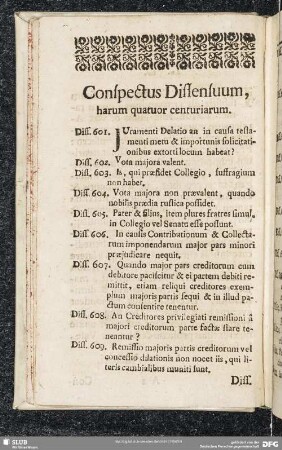 Conſpectus Diſſenſuum,
harum quatuor centuriarum.
Diſſ. 601. JUramenti Delatio an in cauſa teſta-
menti metu & importunis ſolicitati-
onibus extorti locum habeat?
Diſſ. 602. Vota majora valent.
Diſſ. 603. Is, qui præſidet Collegio, ſuffragium
non habet.
Diſſ. 604. Vota majora non prævalent, quando
nobilis prædia ruſtica poſſidet.
Diſſ. 605. Pater & filius, item plures fratres ſimul,
in Collegio vel Senatu eſſe poſſunt.
Diſſ. 606. In cauſis Contributionum & Collecta-
rum imponendarum major pars minori
præjudicare nequit.
Diſſ. 607. Quando major pars creditorum cum
debitore paciſcitur & ei partem debiti re-
mittit, etiam reliqui creditores exem-
plum majoris partis ſequi & in illud pa-
ctum conſentire tenentur.
Diſſ. 608. An Creditores privilegiati remiſſioni à
majori creditorum parte factæ ſtare te-
neantur?
Diſſ. 609. Remiſſio majoris partis creditorum vel
conceſſio dilationis non nocet iis, qui li-
teris cambialibus muniti ſunt.
Diſſ.
SLUB
Wir führen Wissen.
DFG